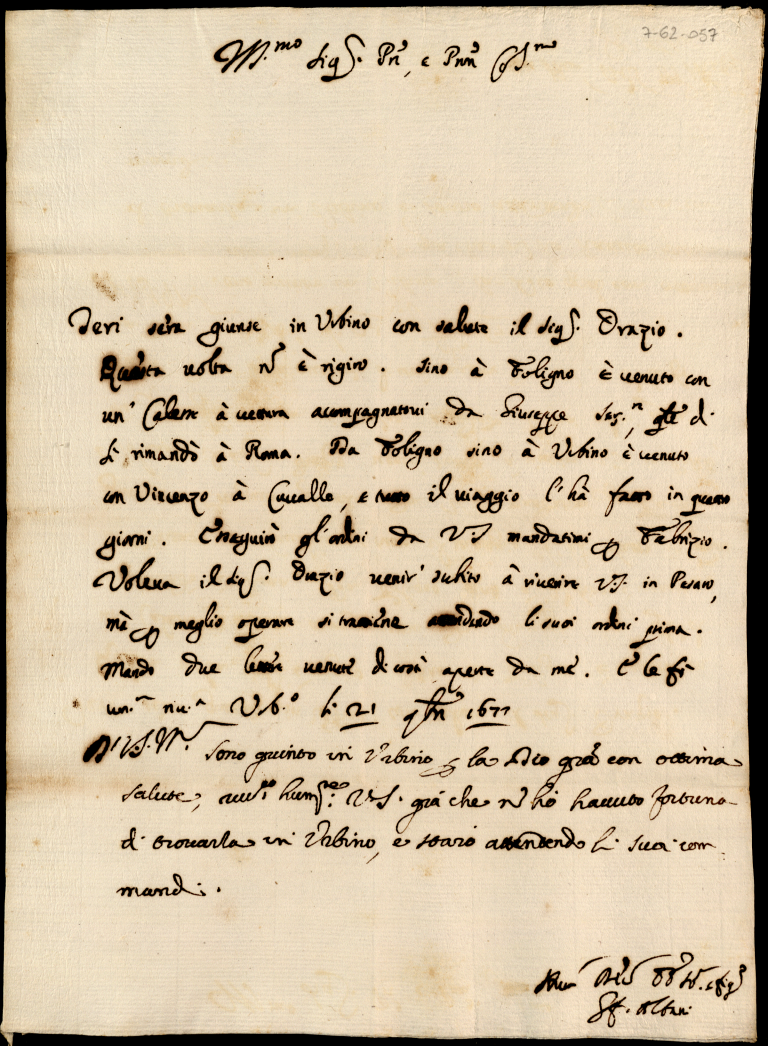 7-62-057
Ill.mo Sig.r P̃n̄, e Pr̄ōn C.mo
Ieri sera giunse in Urbino con salute il Sig.r Orazio.
Questa volta ñ è rigiro. Sino à Foligno è venuto con
un' Calesse à vettura acompagnatovi da Giuseppe Ser.re, q̃le di
lì rimandò à Roma. Da Foligno sino à Urbino è venuto
con Vincenzo à Cavallo, e tutto il viaggio l'hà fatto in quattro
giorni. Eseguirò gl'ordini da V.S. mandatimi p̱ Fabrizio.
Voleva il Sig.r Orazio venir' subito à riverire V.S. in Pesaro,
mà p̱ meglio operare si trattiene attendendo li suoi ordini prima.
Mando due lettere venute di costà aperte da me. E le fò
um.ma riv.a Urb.o li 21 9bre 1677
D. V.S. Ill.
Sono giunto in Urbino p̱ la Dio grã con ottima
salute, riv.co hum.te V.S. già che ñ hò havuto fortuna
di trovarla in Urbino, e starò attendendo li suoi com-
mandi.
Albani